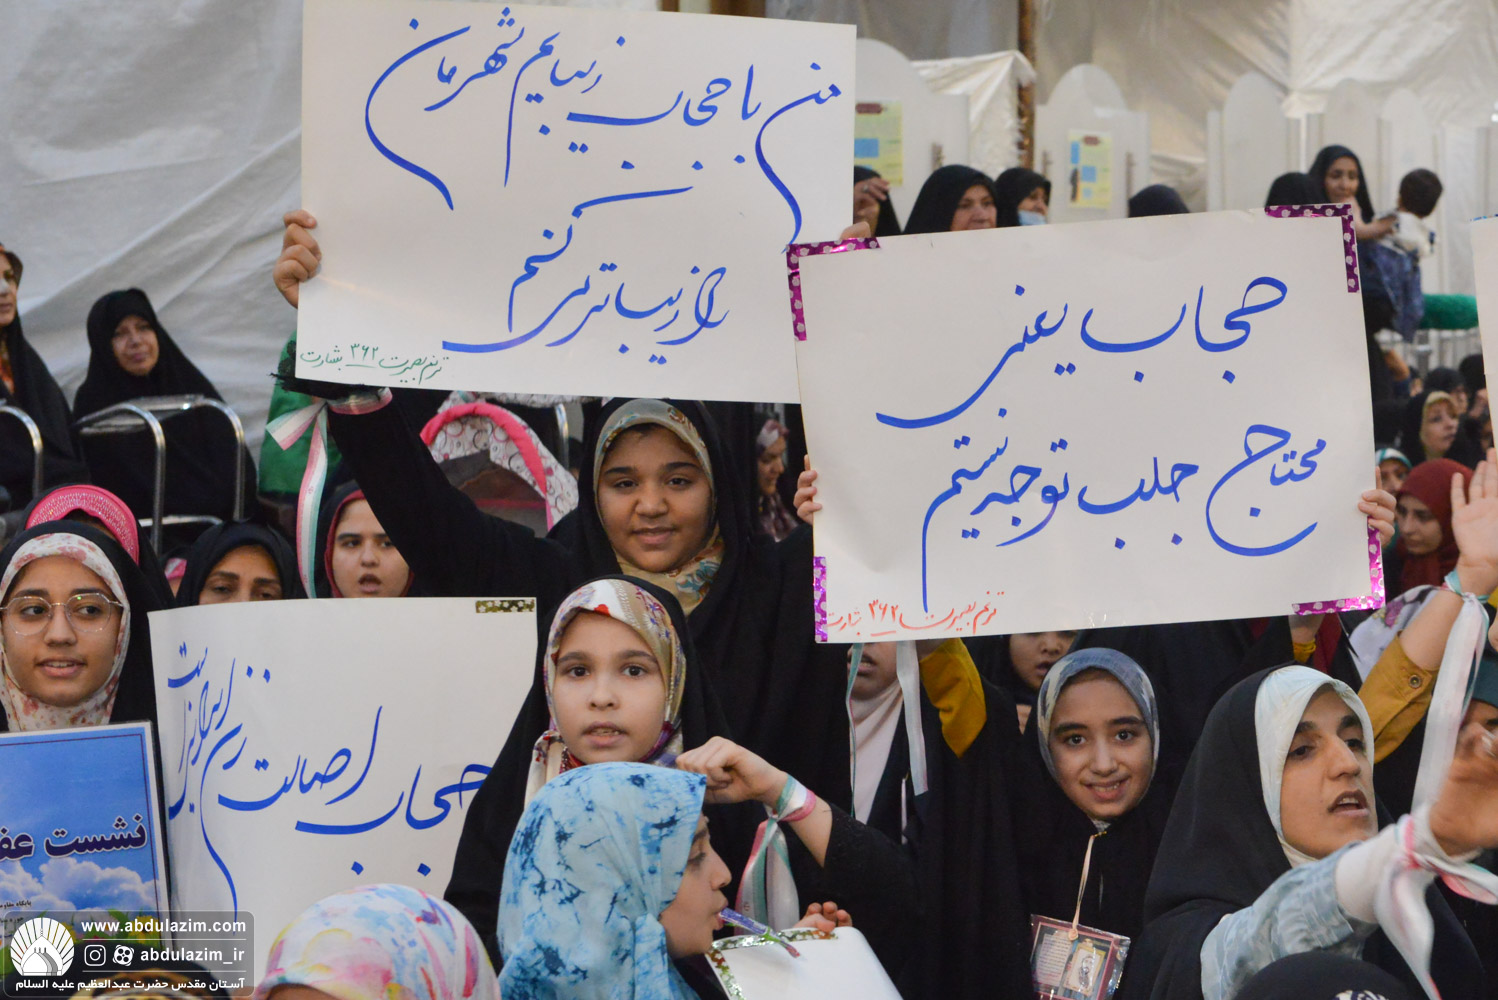 من با حجاب زیبایم شهرمان
را زیباتر می کنم
ترنم بصیرت ۳۶۲ بشارت
حجاب یعنی
محتاج جلب توجه نیستم
ترنم بصیرت ۳۶۲ بشارت
حجاب اصالت زن ایرانی است
نشست عف
پایگاه مقاو
حوزه مقا
www.abdulazim.com
abdulazim_ir
آستان مقدس حضرت عبدالعظیم علیه السلام